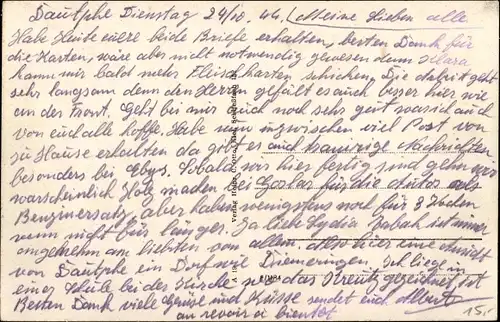 Dautphe Dienstag 24/10. 44. Meine Lieben alle
Habe Heute euere beide Briefe erhalten, besten Dank für
die Karten, wäre aber nicht notwendig gewesen denn Klara
kann mir bald mehr Fleischkarten schicken. Die Arbeit geht
sehr langsam denn den Herren gefält es auch besser hier wie
an der Front. Geht bei mir auch noch sehr gut was ich auch
von euch alle hoffe. Habe nun inzwischen viel Post von
zu Hause erhalten da gibt es auch traurige Nachrichten
besonders bei Ebys. Sobald wir hier fertig sind gehn wir
warscheinlich Holz machen bei Goslar für die Autos als
Benzinersatz, aber haben wenigstens noch für 3 Wochen
wenn nicht für länger. Ja liebe Lydia Tabak ist immer
angenehm am liebsten von allem. Also hier eine Ansicht
von Dautphe ein Dorf wie Diemeringen. Ich liege in
einer Schule bei der Kirche wo das Kreutz gezeichnet ist
Besten Dank viele Grüsse und Küsse sendet euch Albert
au revoir à bientot
15,-